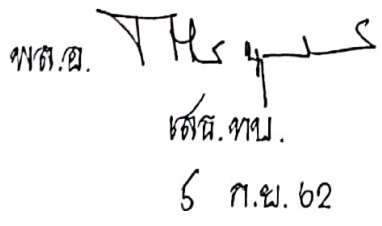 พล.อ.
เสธ.ทบ.
5 ก.ย. 62